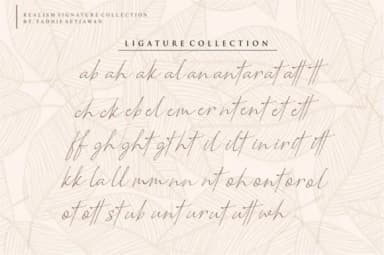 REALISM SIGNATURE COLLECTION
BY. FADHIE SETIAWAN
LIGATURE COLLECTION
ab ah ak al an an tar at att tt
ch ck eb el em er nt ent et ett
ff gh ght gt ht il ilt in ir it itt
kk la ll mm nn nt oh on tor ol
ot ott st ub unt ur ut utt wh